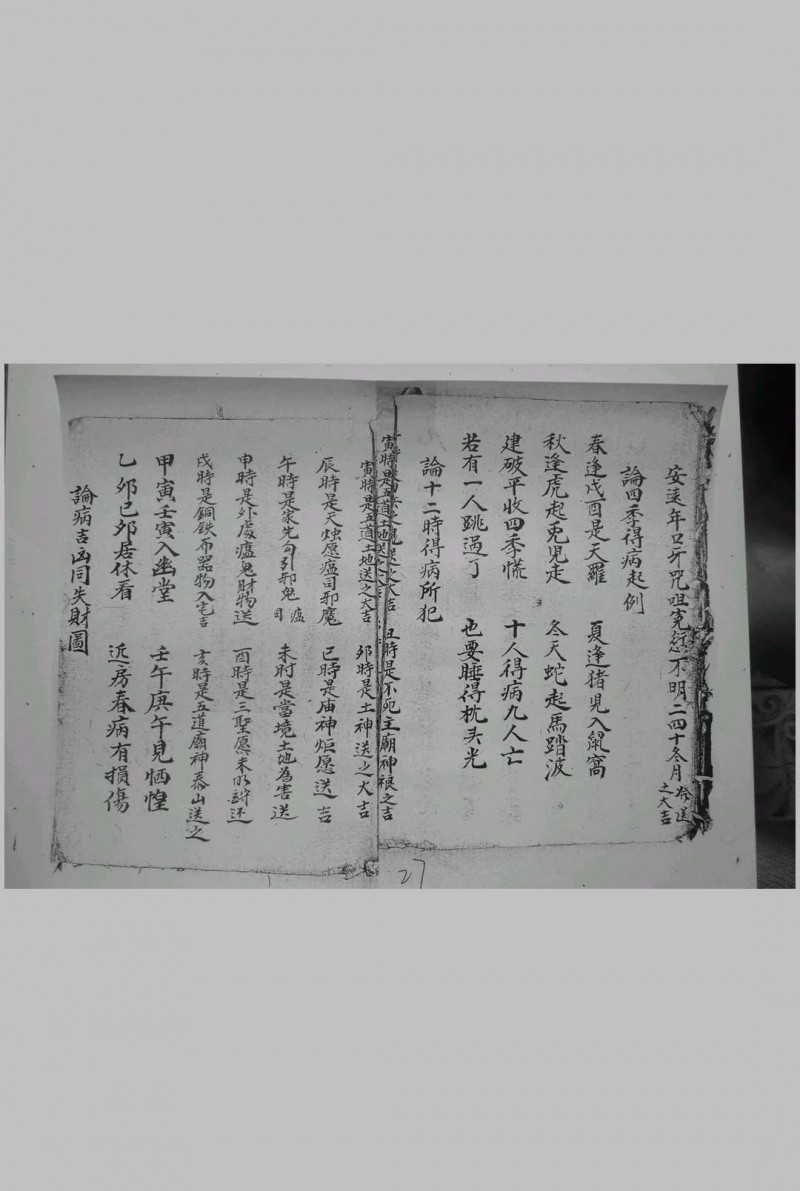 安送年口牙咒咀冤愆不明二四十冬月發送之大吉
論四季得病起例
春逢戊酉是天羅 夏逢猪児入鼠窩
秋逢虎起兎児走 冬天蛇起馬踏波
建破平收四季慌 十人得病九人亡
若有一人跳過了 也要睡得枕头光
論十二時得病所犯
大吉 丑時是不宛主廟神禳之吉
寅時是五道土地送之大吉 卯時是土神送之大吉
辰時是天烛愿瘟司邪魔 巳時是庙神炬愿送吉
午時是家先勾引邪鬼瘟司 未时是當境土地為害送
申時是外處瘟鬼財物送 酉時是三聖愿未明酬还
戍時是銅鉄布器物入宅吉 亥時是五道廟神泰山送之
甲寅壬寅入幽堂 壬午庚午見恓惶
乙卯已卯居休看 近房春病有損傷
論病吉凶同失財圖
27